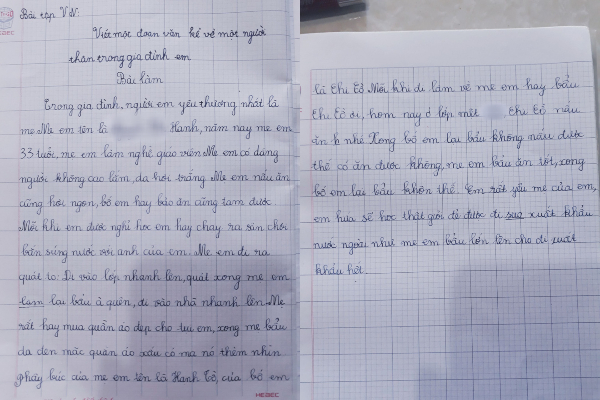 Bài tập VN:
Viết một đoạn văn kể về một người
thân trong gia đình em
Bài làm
Trong gia đình, người em yêu thương nhất là
mẹ. Mẹ em tên là Hạnh, năm nay mẹ em
33 tuổi, mẹ em làm nghề giáo viên. Mẹ em có dáng
người không cao lắm, da hơi trắng. Mẹ em nấu ăn
cũng hơi ngon, bố em hay bảo ăn cũng tạm được.
Mỗi khi em được nghỉ học em hay chạy ra sân chơi
bắn súng nước với anh của em. Mẹ em đi ra
quát to: Đi vào lớp nhanh lên, quát xong mẹ em
lam lại bẩu à quên, đi vào nhà nhanh lên. Mẹ
rất hay mua quần áo đẹp cho tụi em, xong mẹ bẩu
da đen mặc quần áo xấu có ma nó thèm nhìn
phây búc của mẹ em tên là Hạnh Tồ, của bố em
là Thị Tồ. Mỗi khi đi làm về mẹ em hay bẩu
Thị Tồ ơi, hôm nay ở lớp mệt, Thị Tồ nấu
ăn h nhé. Xong bố em lại bẩu không nấu được
thế có ăn được không, mẹ em bẩu ăn tốt, xong
bố em lại bẩu khôn thế. Em rất yêu mẹ của em,
em hứa sẽ học thật giỏi để được đi suc xuất khẩu
nước ngoài như mẹ em bẩu lớn lên cho đi xuất
khẩu hết.
HEDEC